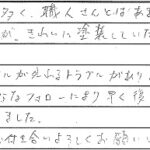 多く、職人さんとはあま
が、きれいに塗装していた
ルが見ぶるトラブルがあり
なフォローにより早く復
ました。
付き合いよろしくお願い